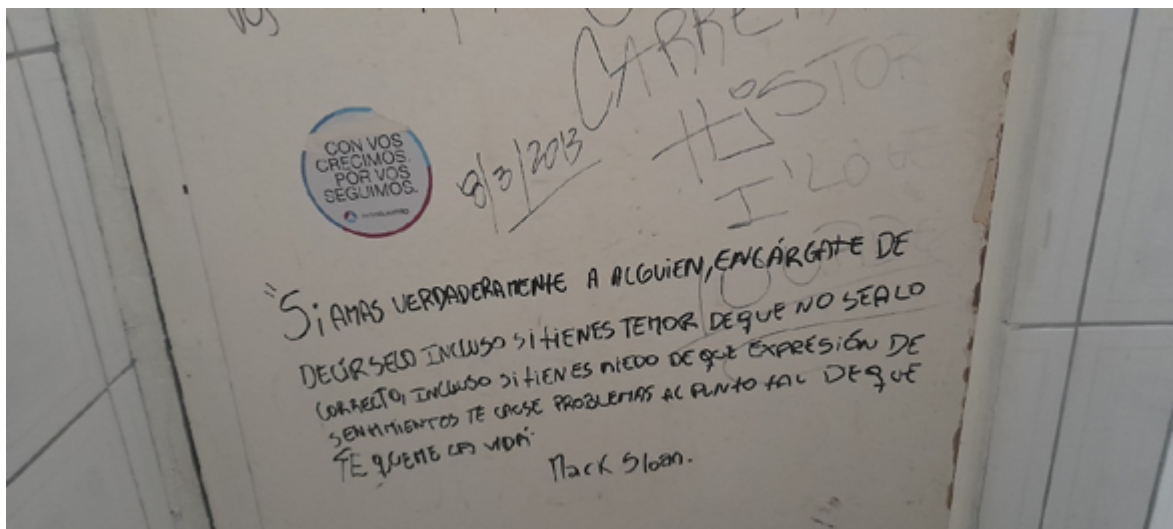 CARRE
8/3/2013
HiSTOR
I'LOVE
CON VOS
CRECIMOS.
POR VOS
SEGUIMOS.
"Si AMAS VERDADERAMENTE A ALGUIEN, ENCÁRGATE DE
DECÍRSELO INCLUSO SI TIENES TEMOR DE QUE NO SEA LO
CORRECTO, INCLUSO SI TIENES MIEDO DE QUE EXPRESIÓN DE
SENTIMIENTOS TE CAUSE PROBLEMAS AL PUNTO TAL DE QUE
TE QUEME LAS VIDA"
Mack Sloan.